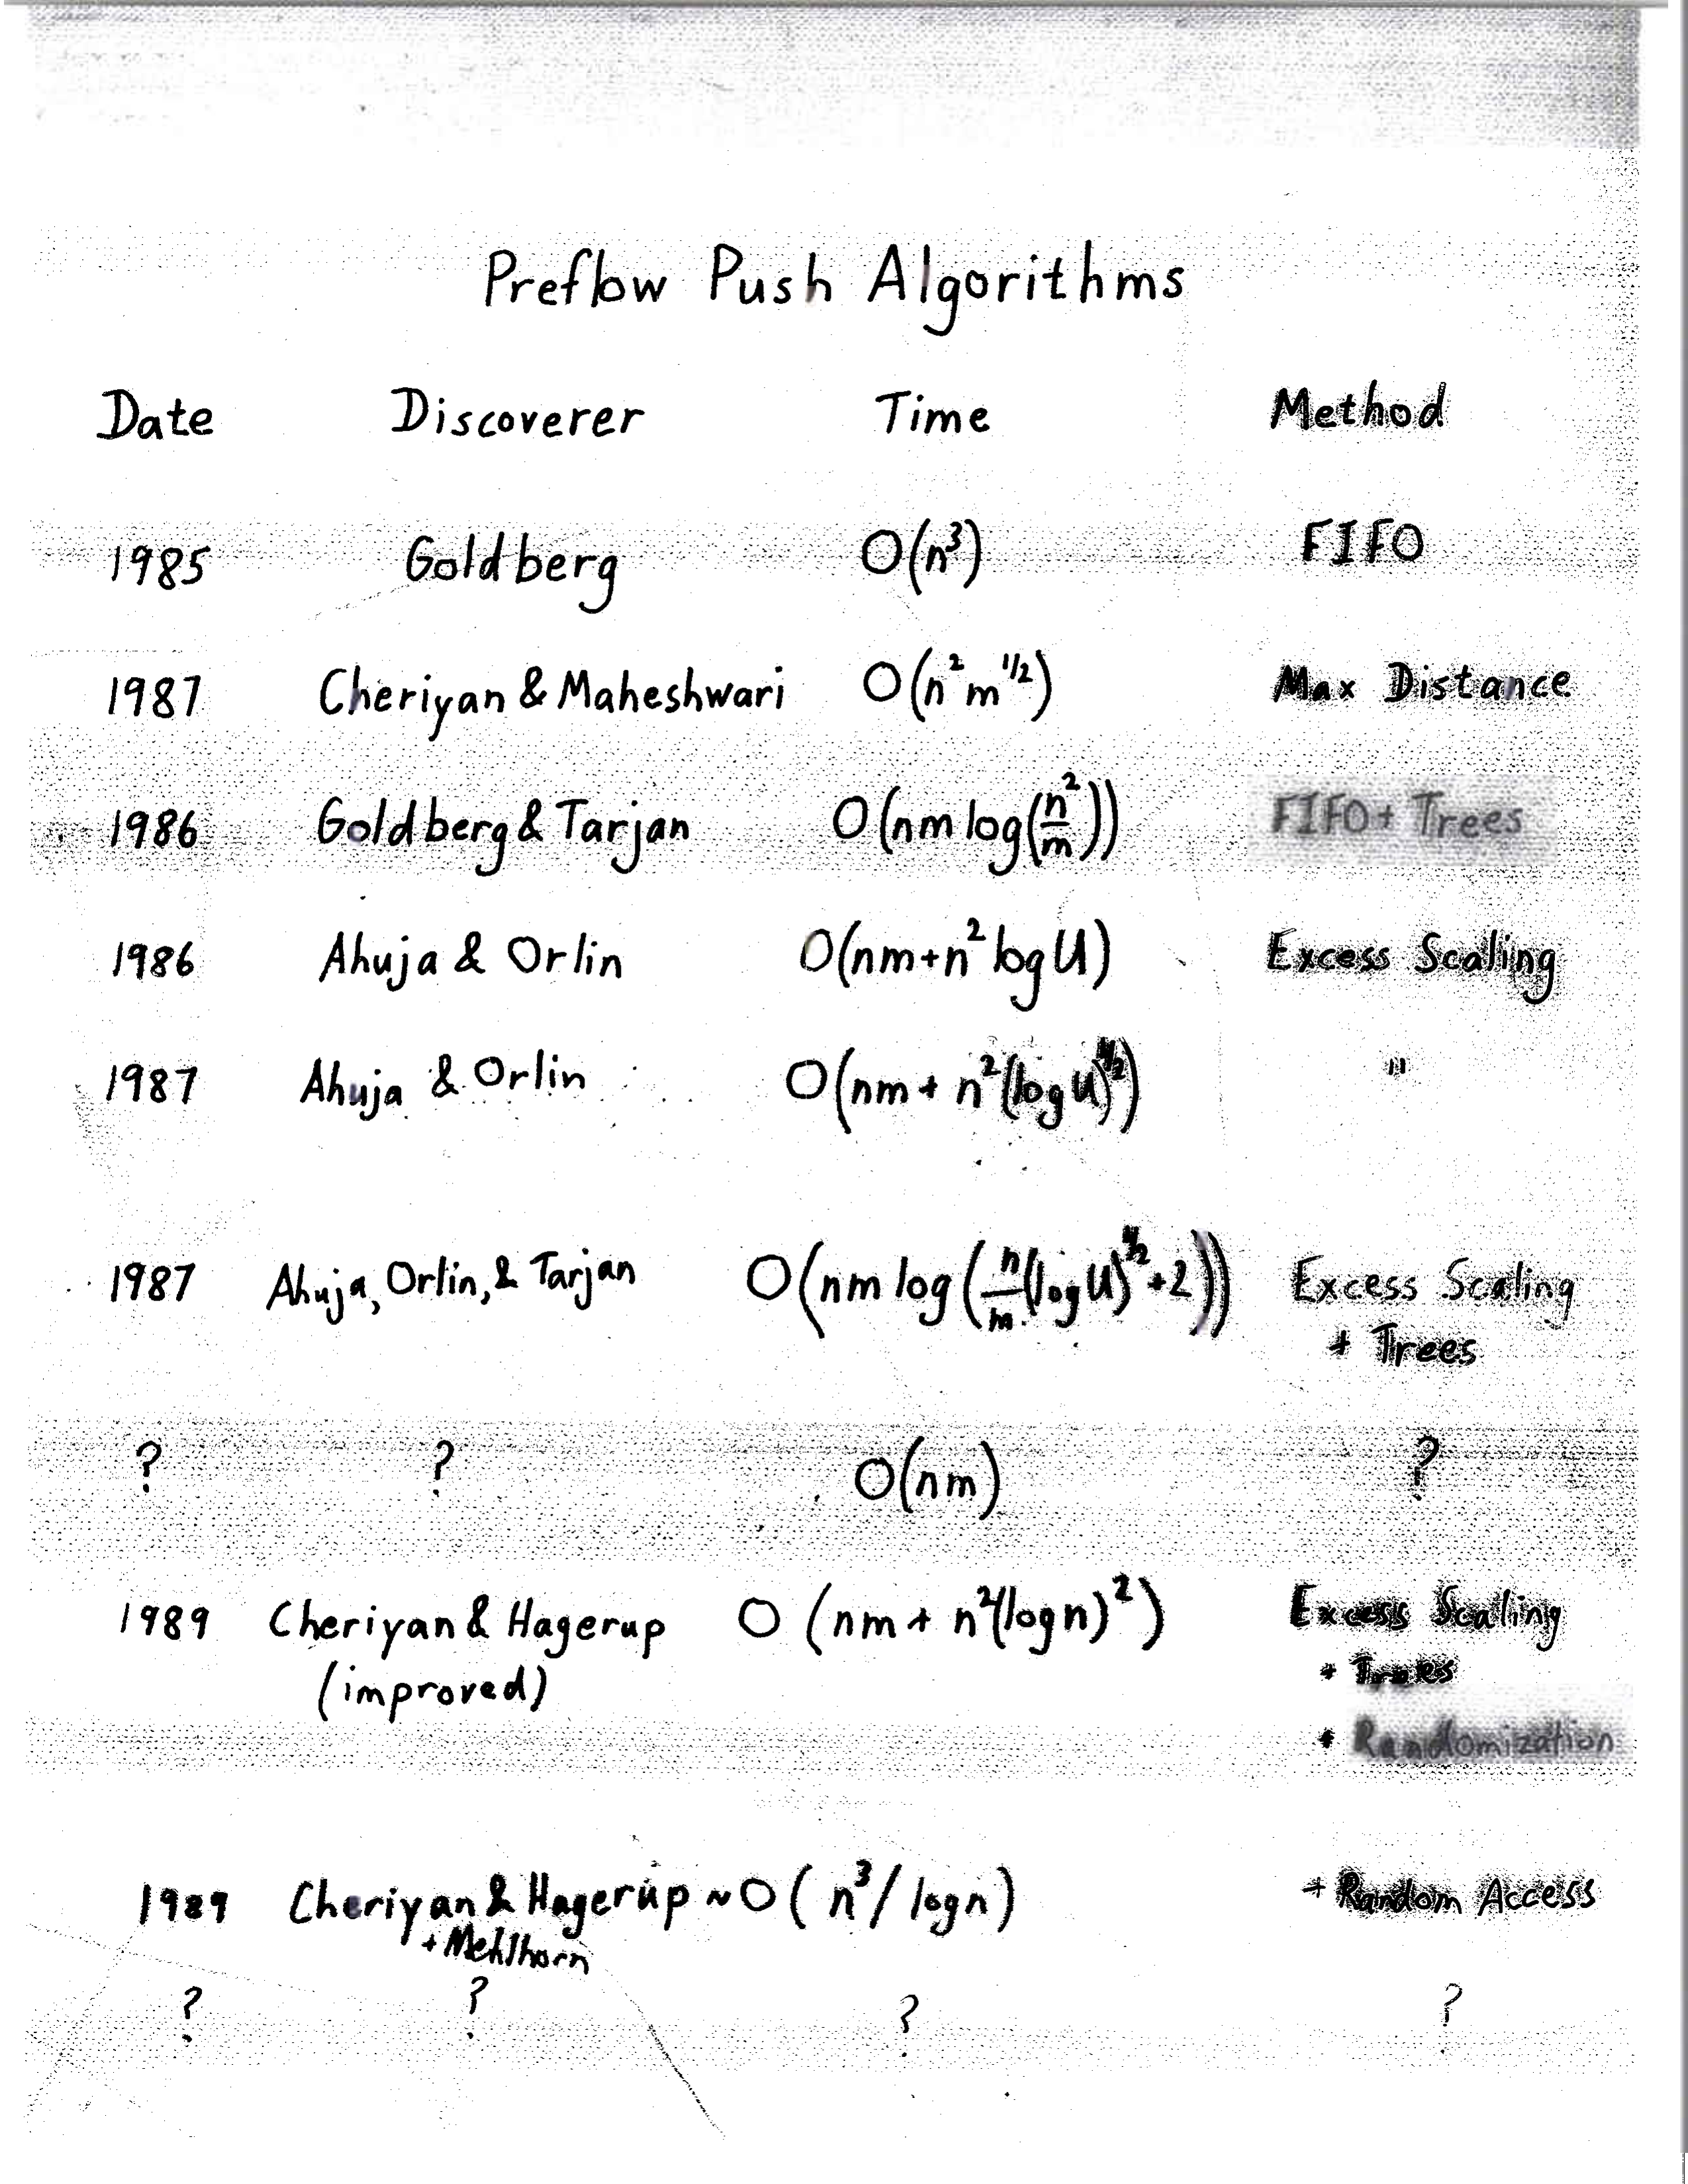 Preflow Push Algorithms
Date Discoverer Time Method
1985 Goldberg O(n³) FIFO
1987 Cheriyan & Maheshwari O(n² m^1/2) Max Distance
1986 Goldberg & Tarjan O(nm log(n²/m)) FIFO + Trees
1986 Ahuja & Orlin O(nm+n² log U) Excess Scaling
1987 Ahuja & Orlin O(nm + n²(log U)^1/2) "
1987 Ahuja, Orlin, & Tarjan O(nm log(n/m (log U)^1/2 + 2)) Excess Scaling
+ Trees
? ? O(nm) ?
1989 Cheriyan & Hagerup O(nm + n²(log n)²) Excess Scaling
(improved) + Trees
+ Randomization
1989 Cheriyan & Hagerup ~O(n³/log n) + Random Access
+ Mehlhorn
? ? ? ?